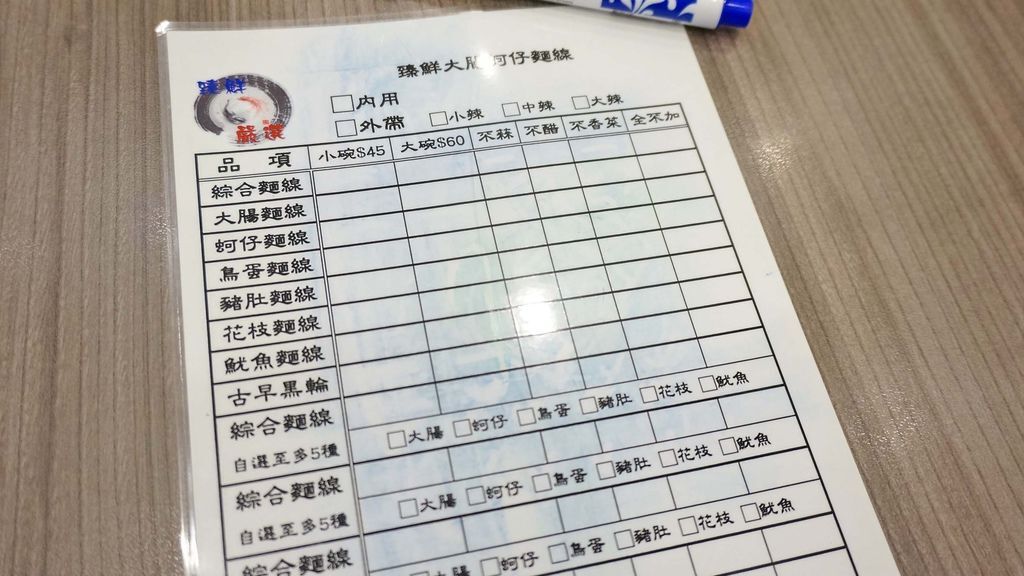 臻鮮大腸蚵仔麵線
臻鮮
嚴選
□內用
□外帶 □小辣 □中辣 □大辣
品 項 小碗$45 大碗$60 不蒜 不醋 不香菜 全不加
綜合麵線
大腸麵線
蚵仔麵線
鳥蛋麵線
豬肚麵線
花枝麵線
魷魚麵線
古早黑輪
綜合麵線
自選至多5種
□大腸 □蚵仔 □鳥蛋 □豬肚 □花枝 □魷魚
綜合麵線
自選至多5種
□大腸 □蚵仔 □鳥蛋 □豬肚 □花枝 □魷魚
綜合麵線
□大腸 □蚵仔 □鳥蛋 □豬肚 □花枝 □魷魚